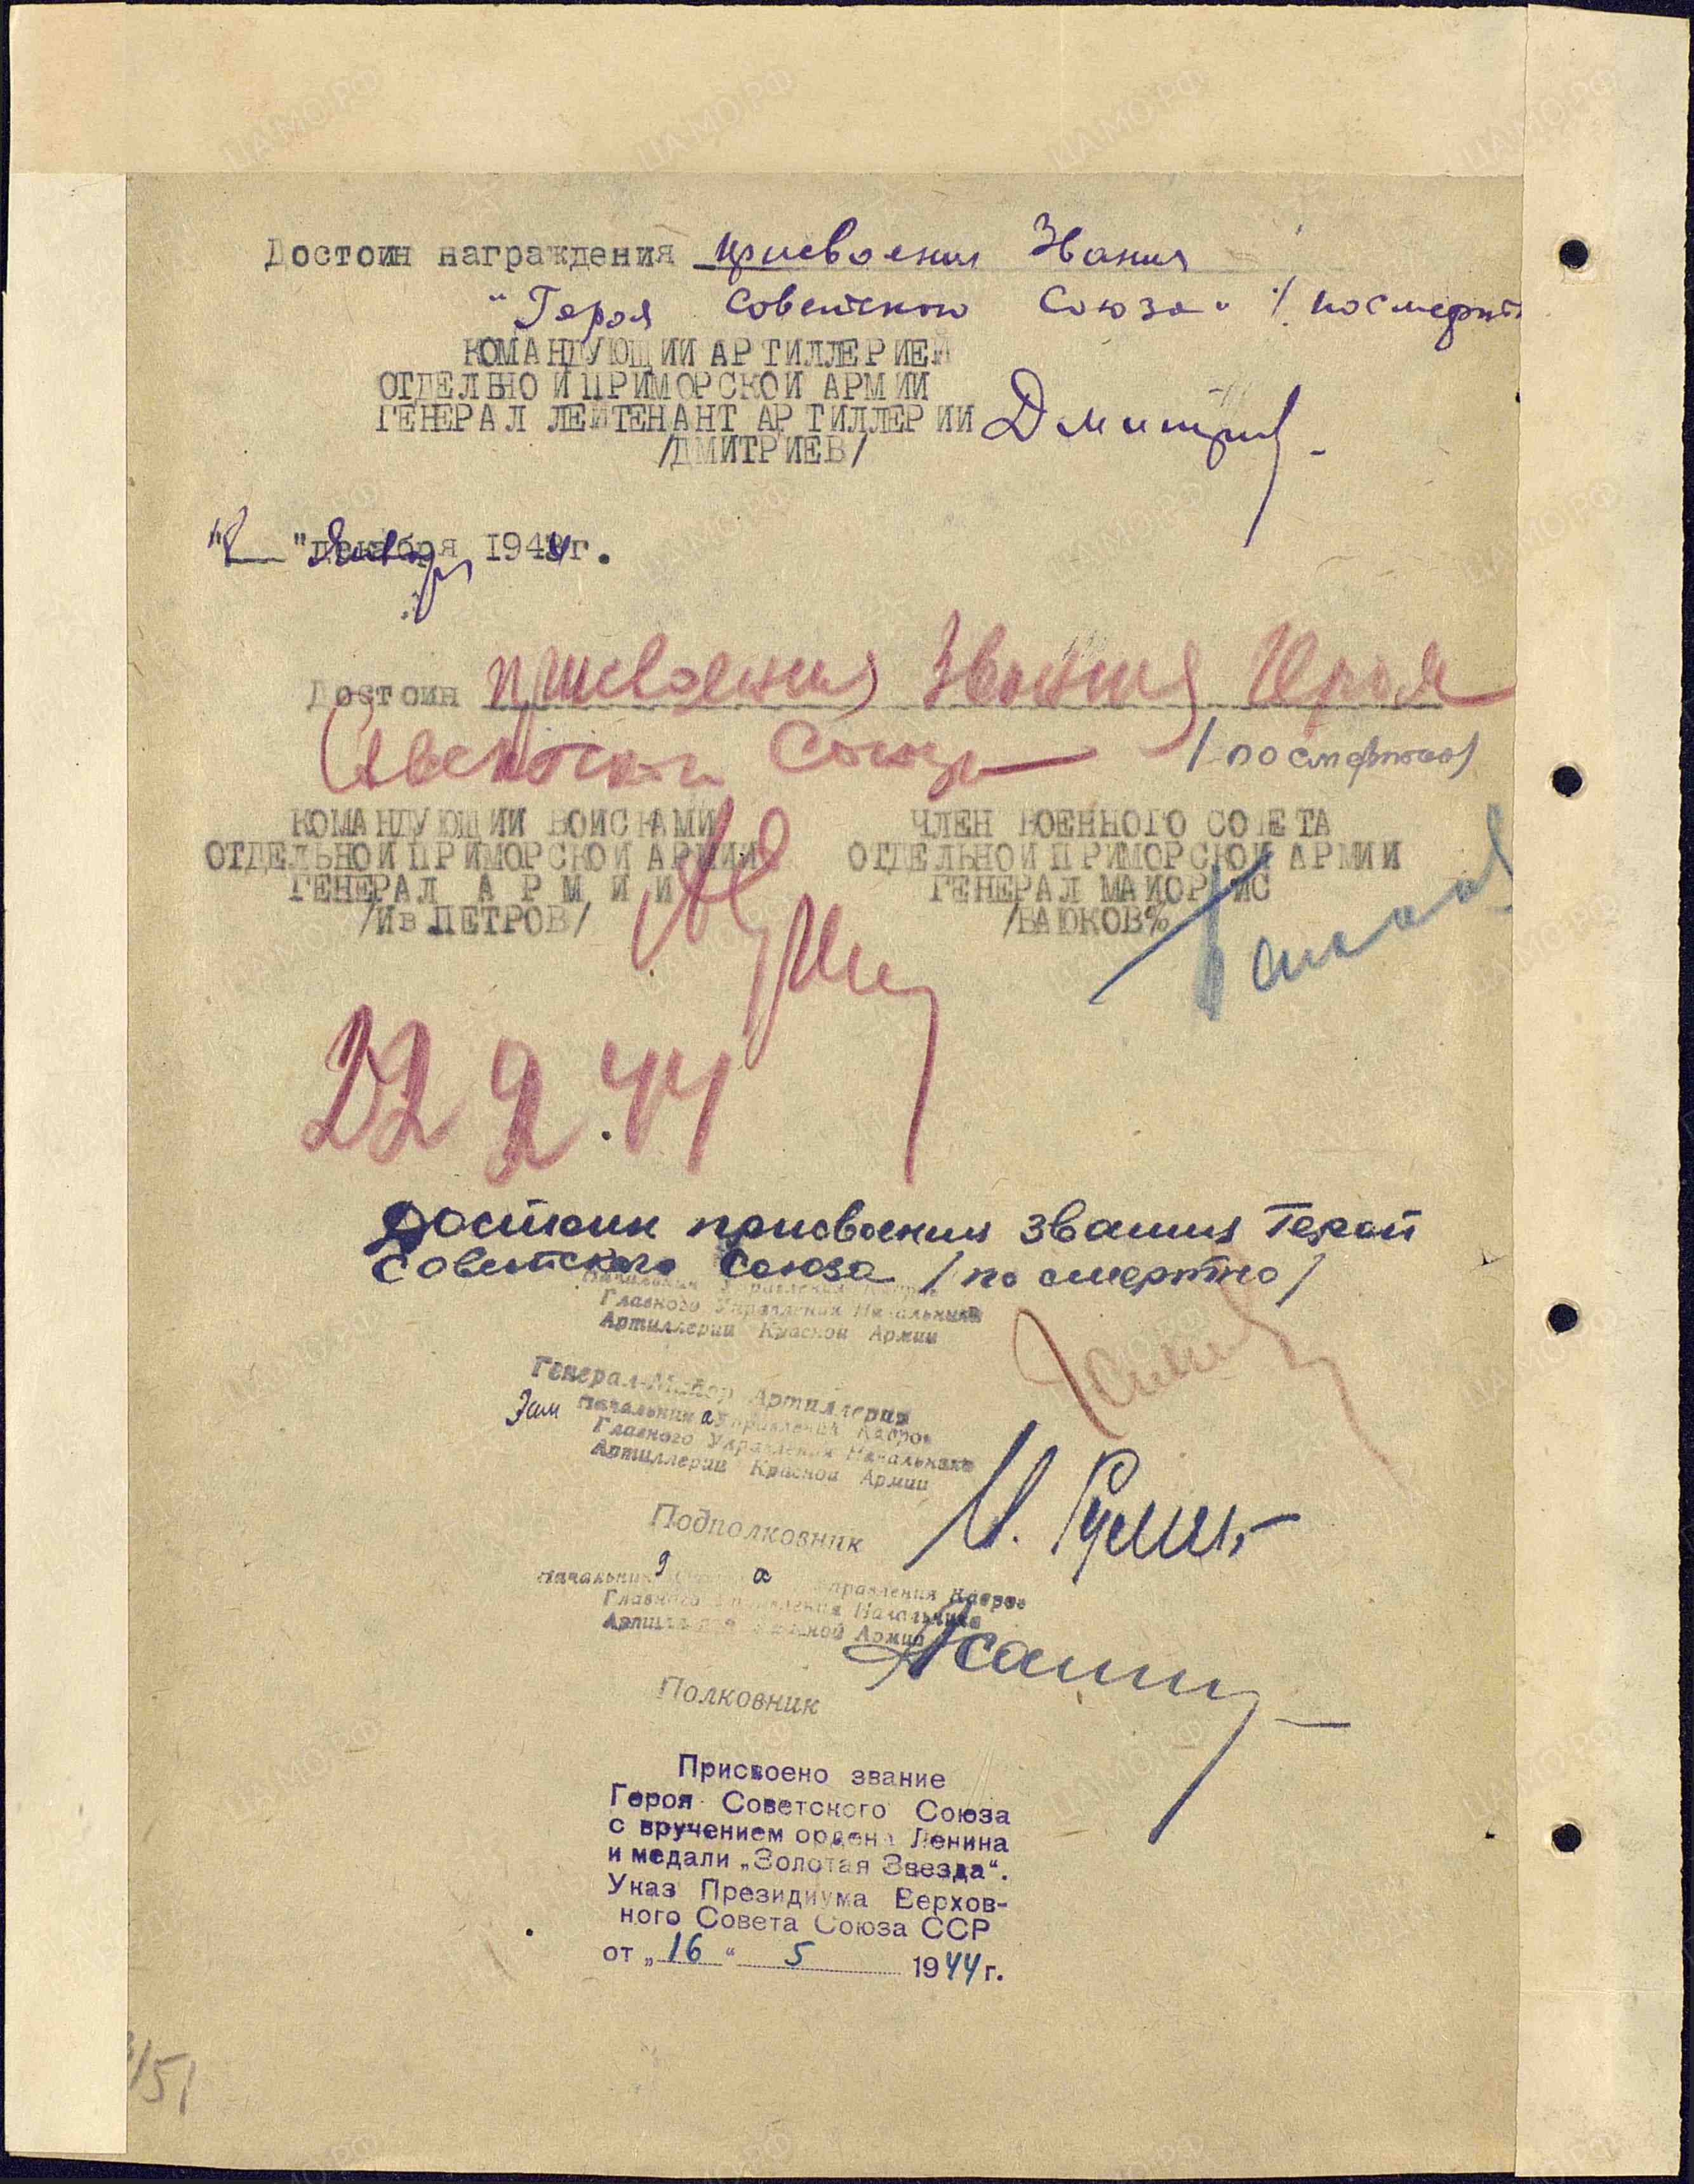 Достоин награждения присвоения Звания
"Героя Советского Союза" / посмертн
КОМАНДУЮЩИЙ АРТИЛЛЕРИЕЙ
ОТДЕЛЬНОЙ ПРИМОРСКОЙ АРМИИ
ГЕНЕРАЛ ЛЕЙТЕНАНТ АРТИЛЛЕРИИ Дмитриев
/ДМИТРИЕВ/
" января 1944г.
Достоин присвоения Звания Героя
Советского Союза / посмертно/
КОМАНДУЮЩИЙ ВОЙСКАМИ
ОТДЕЛЬНОЙ ПРИМОРСКОЙ АРМИИ
ГЕНЕРАЛ А Р М И И
/Ив ПЕТРОВ/
ЧЛЕН ВОЕННОГО СОВЕТА
ОТДЕЛЬНОЙ ПРИМОРСКОЙ АРМИИ
ГЕНЕРАЛ МАЙОР ИС
/БАЮКОВ%
22 2.44
Достоин присвоения звания Герой
Советского Союза / по смертно/
Начальник Управления Кадров
Главного Управления Начальника
Артиллерии Красной Армии
Генерал-Майор Артиллерии
Зам Начальника Управления Кадров
Главного Управления Начальника
Артиллерии Красной Армии
Подполковник
Начальник Управления Кадров
Главного Управления Начальника
Артиллерии Красной Армии
Полковник
Присвоено звание
Героя Советского Союза
с вручением ордена Ленина
и медали „Золотая Звезда“.
Указ Президиума Верхов-
ного Совета Союза ССР
от „16“ 5 1944г.
/51